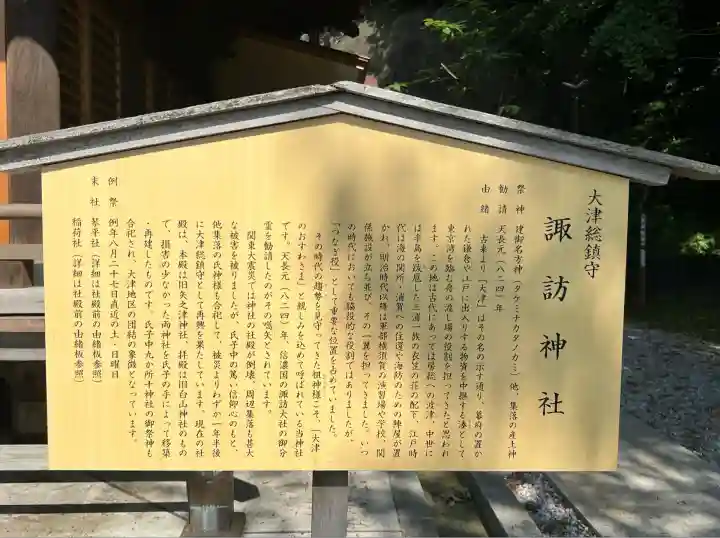 大津総鎮守
諏訪神社
祭神 建御名方神（タケミナカタノカミ）他、集落の産土神
勧請 天長元（八二四）年
由緒 古来より「大津」はその名の示す通り、幕府の置か
れた鎌倉や江戸に出入りする物資を中継する湊として
東京湾を臨む舟の流し場の役割を担ってきたと思われ
ます。この地は古代にあっては房総への渡津、中世に
は半島を跋扈した三浦一族の衣笠の荘の配下、江戸時
代は海の関所・浦賀への往還や海防のための陣屋が置
かれ、明治時代以降は軍都横須賀の演習場や学校、関
係施設が立ち並び、その一翼を担ってきました。いつ
の時代においても脇役的な役割ではありましたが、
「つなぎ役」として重要な位置を占めていました。
その時代の趨勢を見守ってきた祖神様こそ、「大津
のおすわさま」と親しみを込めて呼ばれている当神社
です。天長元（八二四）年、信濃国の諏訪大社の御分
霊を勧請したのがその嚆矢とされています。
関東大震災では神社の社殿が倒壊、周辺集落も甚大
な被害を被りましたが、氏子中の篤い信仰心のもと、
他集落の氏神様も合祀して、被災よりわずか一年半後
に大津総鎮守として再興を果たしています。現在の社
殿は、本殿は旧矢之津神社、拝殿は旧白山神社のもの
で、損害の少なかった両神社を氏子の手によって移築
・再建したものです。氏子中九か所十神社の御祭神も
合祀され、大津地区の団結の象徴となっています。
例祭 例年八月二十七日直近の土・日曜日
末社 琴平社（詳細は社殿前の由緒板参照）
稲荷社（詳細は社殿前の由緒板参照）